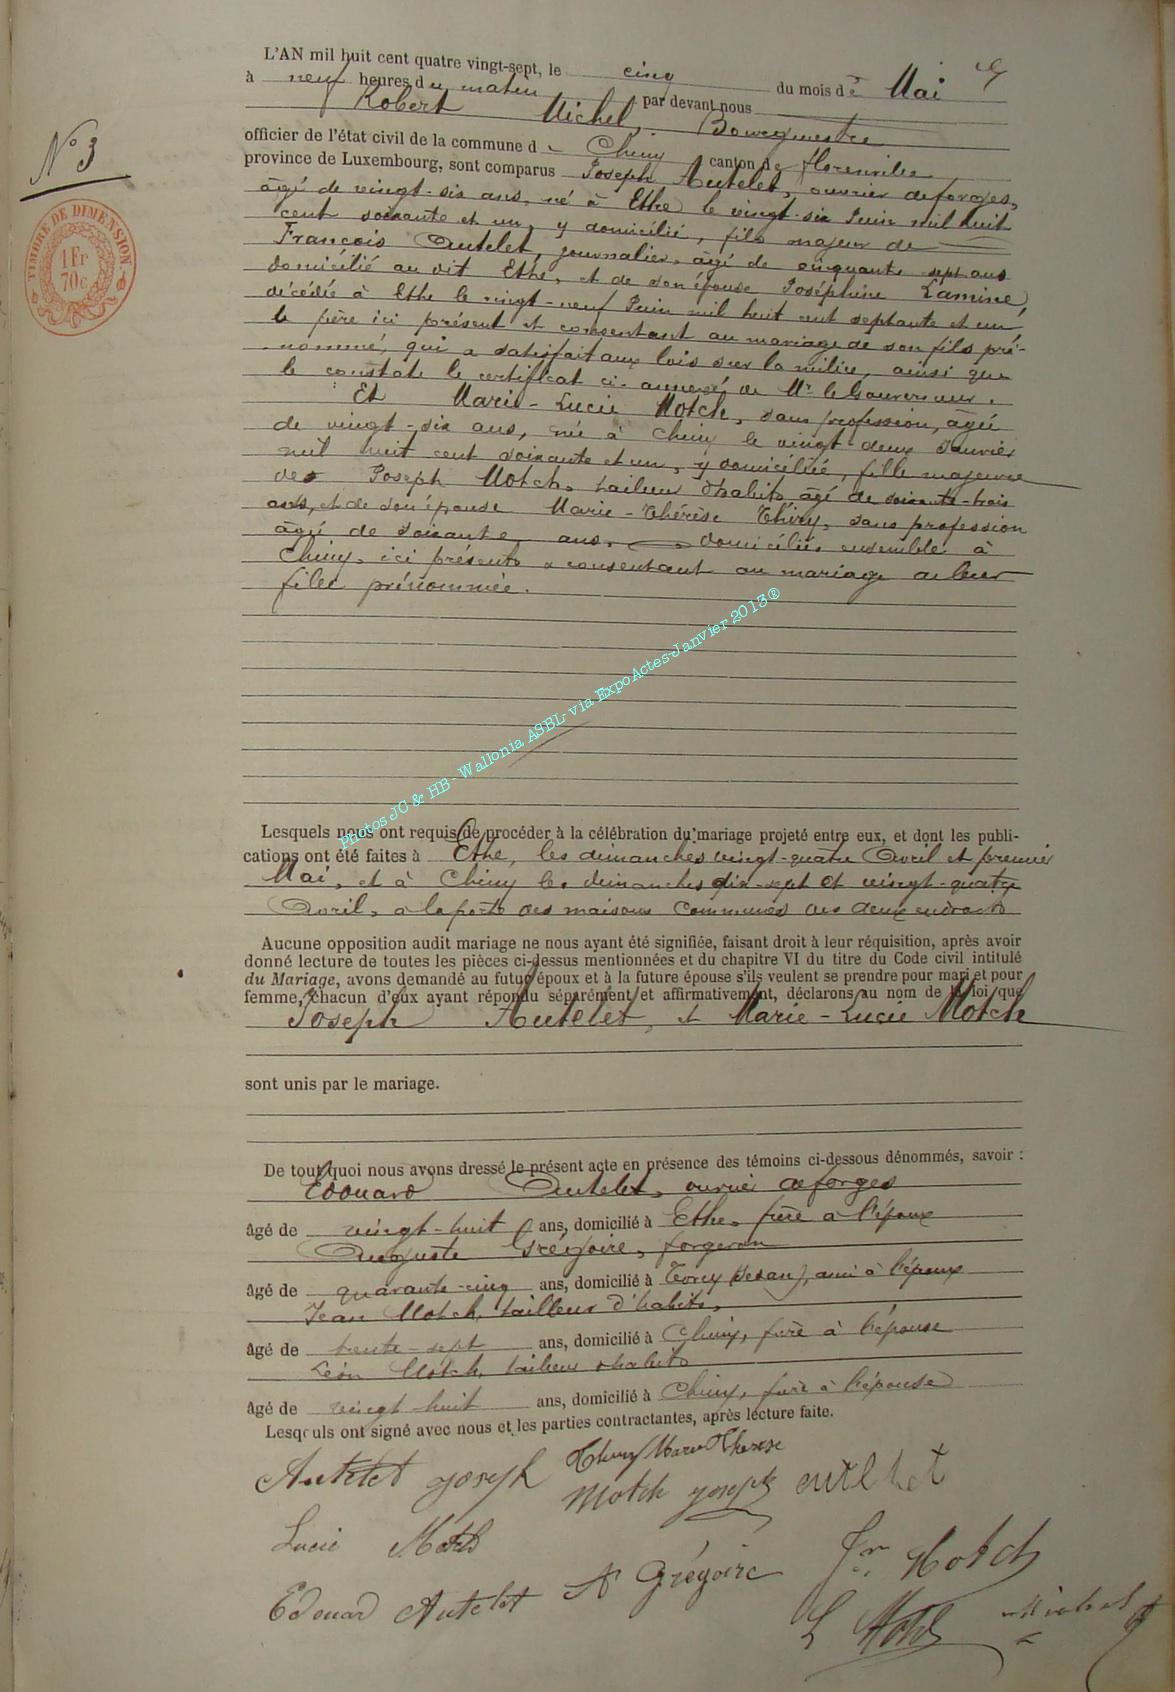 L'AN mil huit cent quatre vingt-sept, le cinq du mois de Mai
à neuf heures du matin par devant nous
Robert Michel, Bourgmestre
officier de l'état civil de la commune de Chiny canton de florenville
province de Luxembourg, sont comparus Joseph Autelet, ouvrier de forges,
âgé de vingt-six ans, né à Ethe le vingt-six Juin mil huit
cent soixante et un, y domicilié, fils majeur de
François Autelet, journalier, âgé de cinquante sept ans
domicilié au dit Ethe, et de son épouse Joséphine Laminé,
décédée à Ethe le vingt-neuf Juin mil huit cent septante et un,
le père ici présent et consentant au mariage de son fils pré-
nommé, qui a satisfait aux lois sur la milice, ainsi que
le constate le certificat ci-annexé de Mr le Gouverneur.
Et Marie-Lucie Motch, sans profession, âgée
de vingt-six ans, née à Chiny le vingt-deux Janvier
mil huit cent soixante et un, y domiciliée, fille majeure
de Joseph Motch, tailleur d'habits âgé de soixante-trois
ans, et de son épouse Marie-Thérèse Thiry, sans profession
âgée de soixante ans, domiciliés ensemble à
Chiny, ici présents & consentant au mariage de leur
fille prénommée.
N° 3
TIMBRE DE DIMENSION
1 Fr
70c
Photos JC & HB - Wallonia ASBL via ExpoActes-Janvier 2013®
Lesquels nous ont requis de procéder à la célébration du mariage projeté entre eux, et dont les publi-
cations ont été faites à Ethe, les dimanches vingt-quatre Avril et premier
Mai, et à Chiny les dimanches dix-sept et vingt-quatre
Avril, à la porte des maisons communes des deux endroits
Aucune opposition audit mariage ne nous ayant été signifiée, faisant droit à leur réquisition, après avoir
donné lecture de toutes les pièces ci-dessus mentionnées et du chapitre VI du titre du Code civil intitulé
du Mariage, avons demandé au futur époux et à la future épouse s'ils veulent se prendre pour mari et pour
femme, chacun d'eux ayant répondu séparément et affirmativement, déclarons au nom de la loi que
Joseph Autelet, et Marie-Lucie Motch
sont unis par le mariage.
De tout quoi nous avons dressé le présent acte en présence des témoins ci-dessous dénommés, savoir :
Edouard Autelet, ouvrier de forges
âgé de vingt-huit ans, domicilié à Ethe, frère à l'époux
Auguste Grégoire, forgeron
âgé de quarante-cinq ans, domicilié à Torcy (Sedan), ami à l'époux
Jean Motch, tailleur d'habits,
âgé de trente-sept ans, domicilié à Chiny, frère à l'épouse
Léon Motch, tailleur d'habits
âgé de vingt huit ans, domicilié à Chiny, frère à l'épouse
Lesquels ont signé avec nous et les parties contractantes, après lecture faite.
Autelet joseph Thiry Marie Thérèse
Motch joseph autelet
Lucie Motch
Edouard Autelet A Grégoire Jn Motch
L Motch Michel R